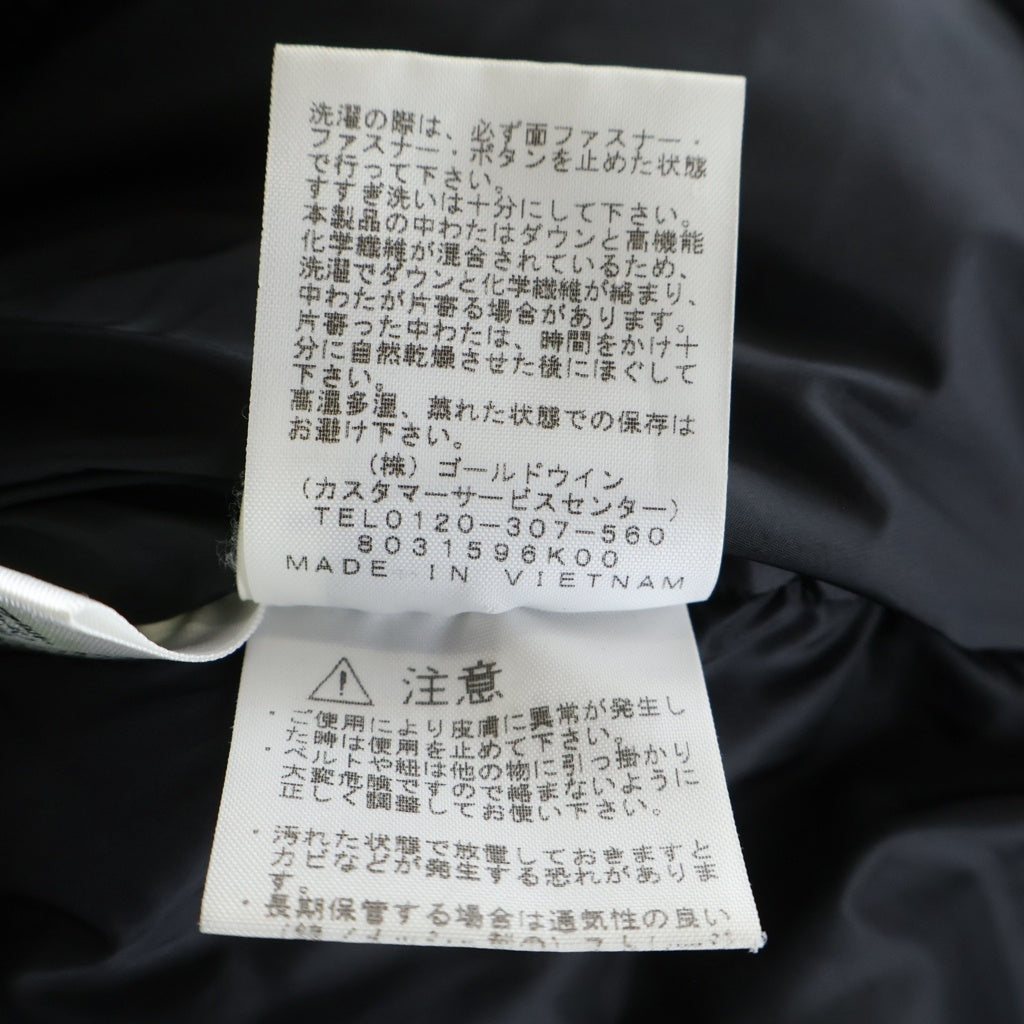 洗濯の際は、必ず面ファスナー・
ファスナー、ボタンを止めた状態
で行って下さい。
すすぎ洗いは十分にして下さい。
本製品の中わたはダウンと高機能
化学繊維が混合されているため、
洗濯でダウンと化学繊維が絡まり、
中わたが片寄る場合があります。
片寄った中わたは、時間をかけ十
分に自然乾燥させた後にほぐして
下さい。
高温多湿、蒸れた状態での保存は
お避け下さい。
(株)ゴールドウイン
(カスタマーサービスセンター)
TEL0120-307-560
8031596K00
MADE IN VIETNAM
注意
・ご使用により皮膚に異常が発生し
た時は使用を止めて下さい。
・ベルトや紐は他の物に引っ掛かり
大変危険ですので絡まないように
正しく調整してお使い下さい。
・汚れた状態で放置しておきますと
カビなどが発生する恐れがありま
す。
・長期保管する場合は通気性の良い